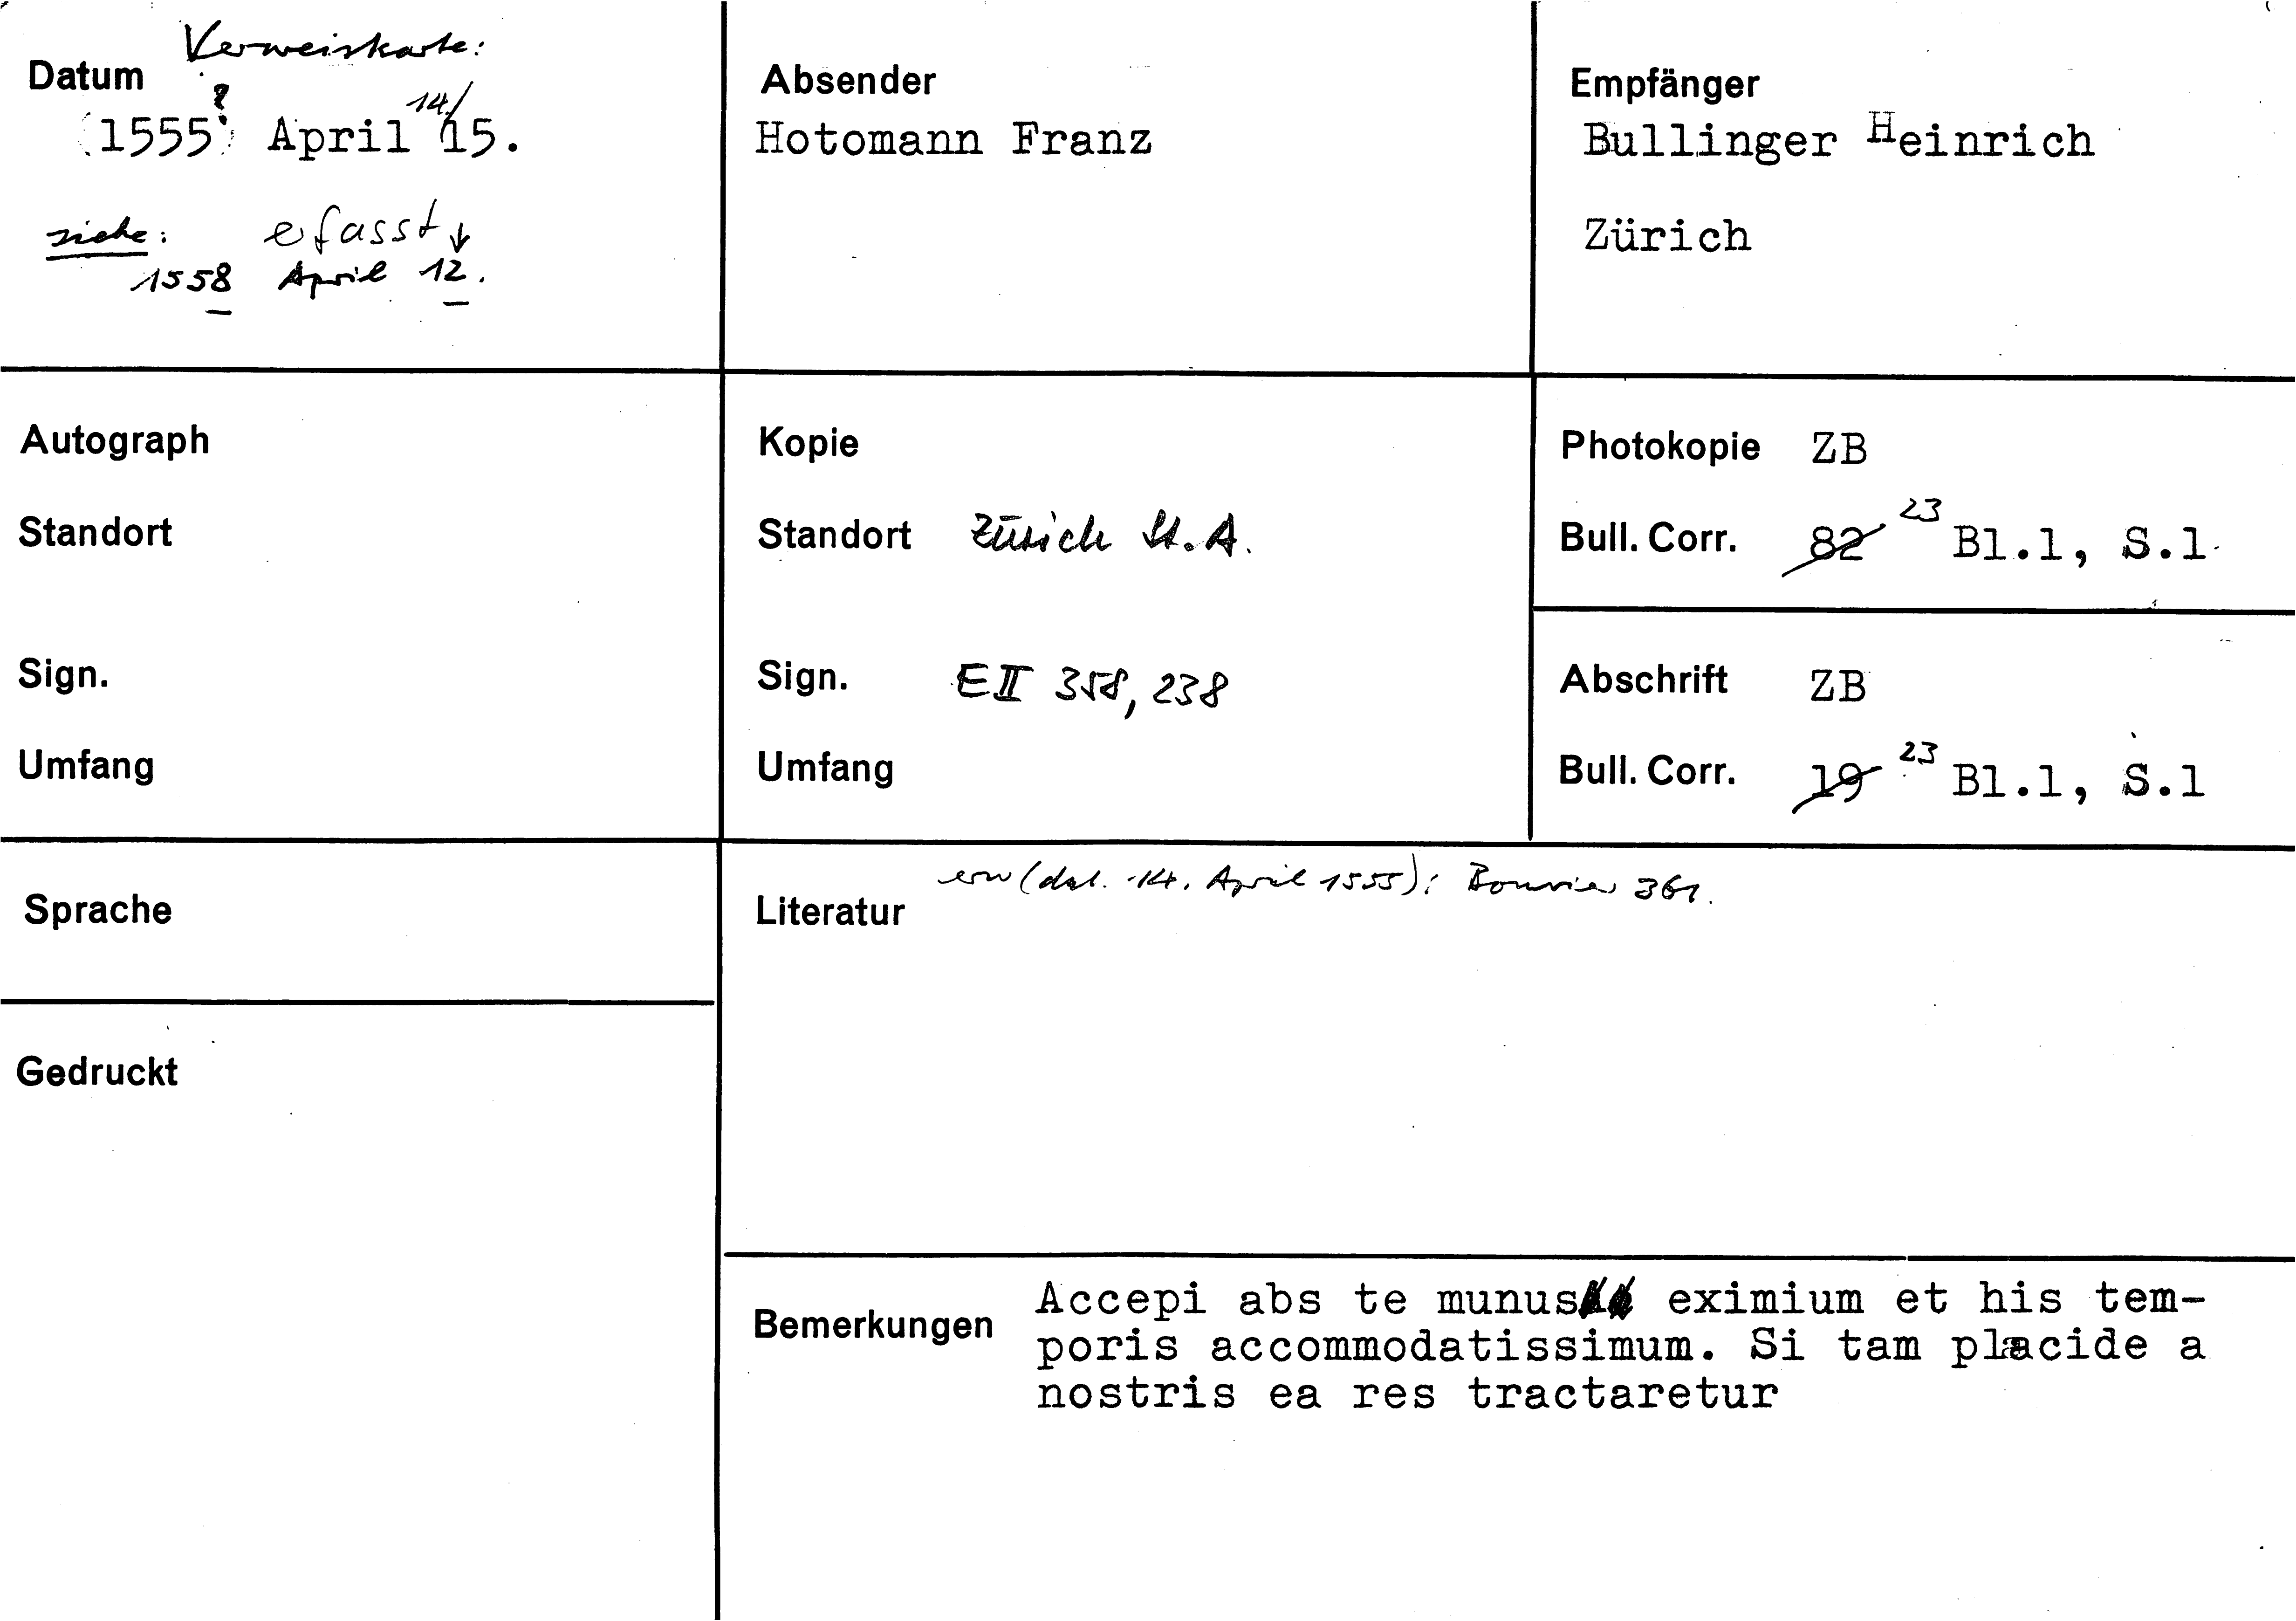 Verweiskarte:
Datum
(1555?) April 14/15.
siehe: efasst ↓
1558 April 12.
Absender
Hotomann Franz
Empfänger
Bullinger Heinrich
Zürich
Autograph
Standort
Sign.
Umfang
Kopie
Standort Zürich St.A.
Sign. E II 358, 238
Umfang
Photokopie ZB
Bull. Corr. 82 23 Bl.1, S.1
Abschrift ZB
Bull. Corr. 19 23 Bl.1, S.1
Sprache
Gedruckt
erw (dat. 14. April 1555): Bouvier 361.
Literatur
Bemerkungen
Accepi abs te munus eximium et his tem-
poris accommodatissimum. Si tam placide a
nostris ea res tractaretur